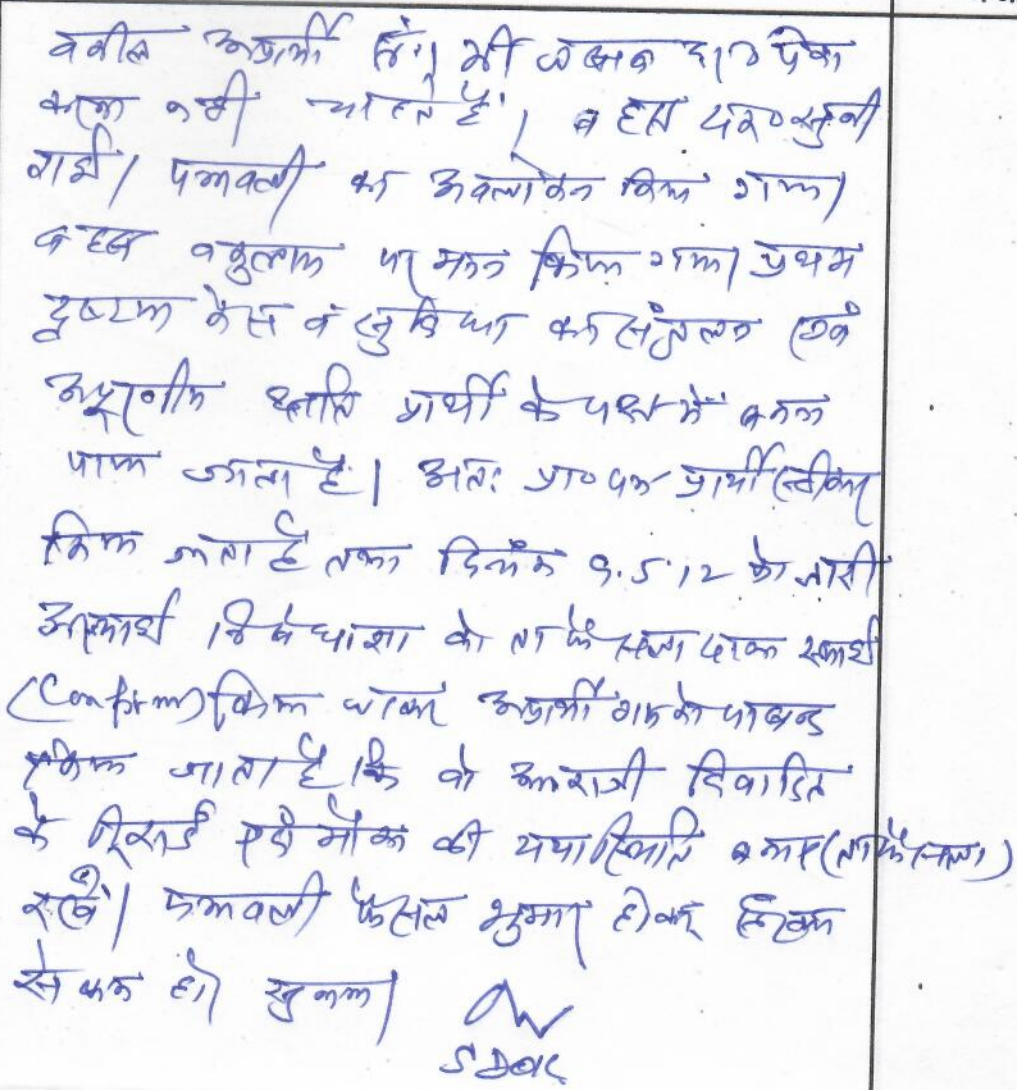 वकील अप्रार्थी सं0 भी जवाब दा0 पेश
करना नहीं चाहते हैं। बहस दर0 सुनी
गई। पत्रावली का अवलोकन किया गया।
बहस वकुलाय पर मनन किया गया। प्रथम
दृष्टया केस व सुविधा का संतुलन एवं
अपूरणीय क्षति प्रार्थी के पक्ष में बनना
पाया जाता है। अतः प्रा0 पत्र प्रार्थी स्वीकार
किया जाता है तथा दिनांक 9.5.12 को जारी
अस्थाई निषेधाज्ञा को ता फैसला स्थाई
(Confirm) किया जाकर अप्रार्थीगण को पाबन्द
किया जाता है कि वे आराजी विवादित
के रिकार्ड एवं मौका की यथास्थिति बनाए (ता फैसला)
रखें। पत्रावली फैसल शुमार होकर
से कम हो। सुनाया
SDOIC